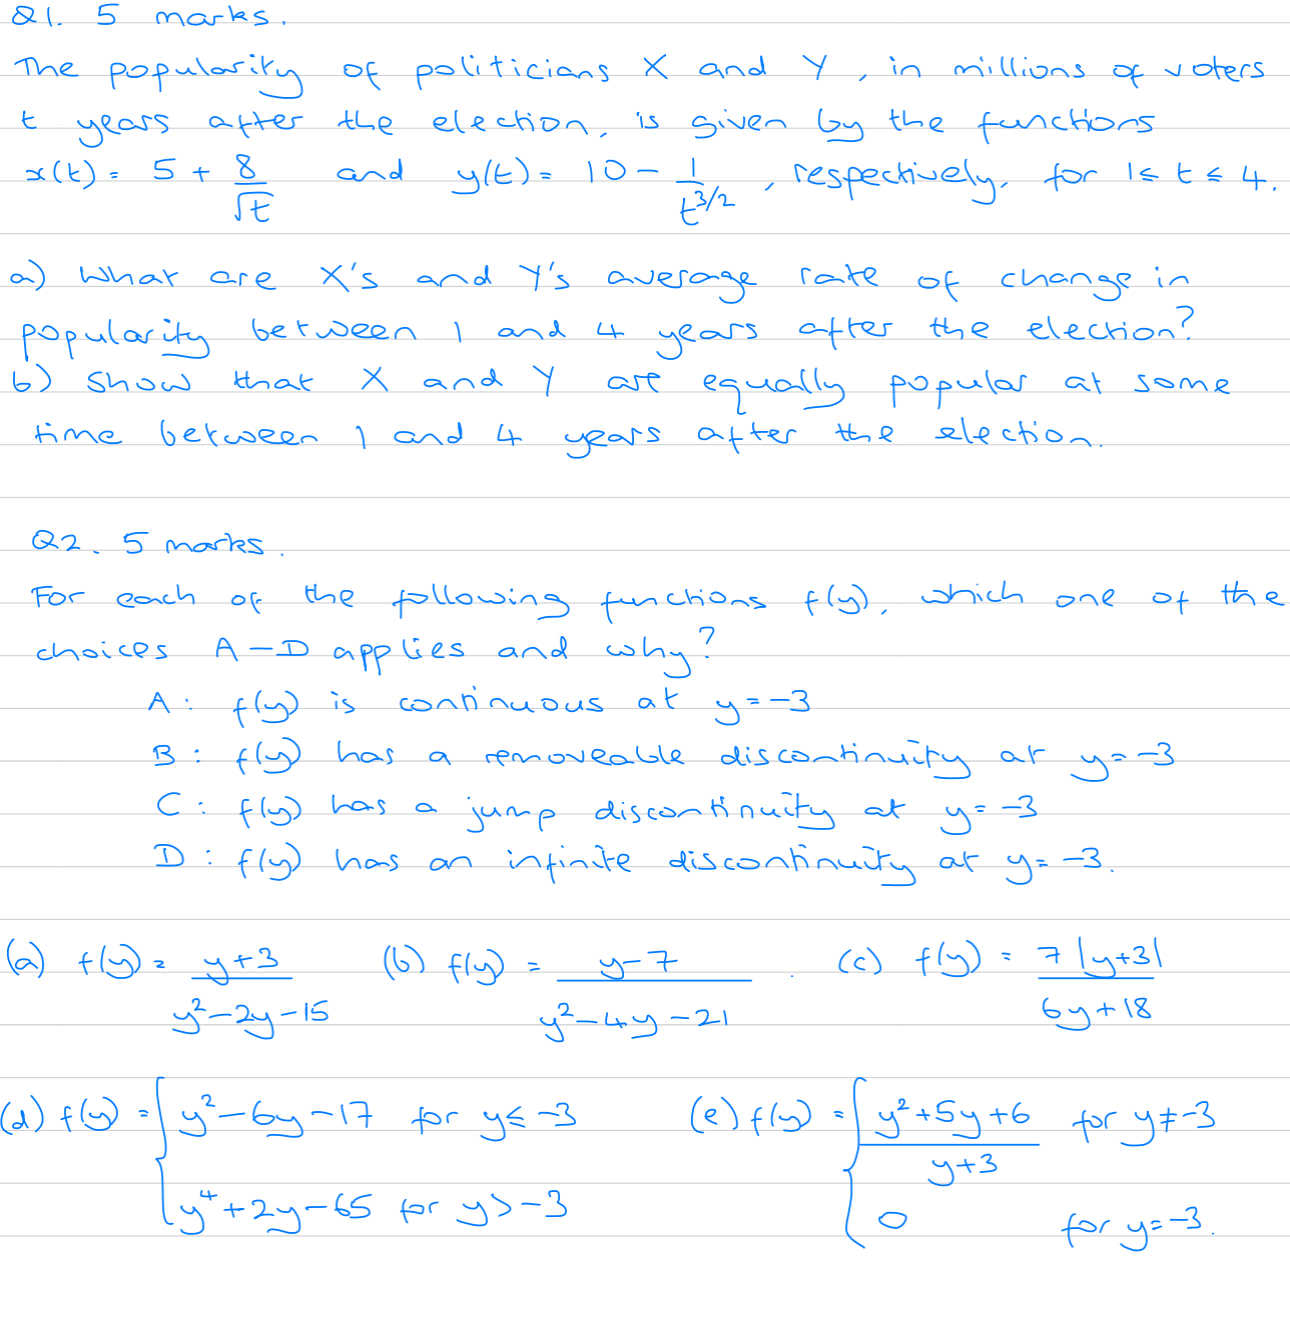 Q1. 5 marks.
The popularity of politicians X and Y, in millions of voters
t years after the election, is given by the functions
x(t) = 5 + 8/√t and y(t) = 10 - 1/t^(3/2), respectively, for 1 ≤ t ≤ 4.
a) What are X's and Y's average rate of change in
popularity between 1 and 4 years after the election?
b) Show that X and Y are equally popular at some
time between 1 and 4 years after the election.
Q2. 5 marks.
For each of the following functions f(y), which one of the
choices A-D applies and why?
A: f(y) is continuous at y=-3
B: f(y) has a removeable discontinuity at y=-3
C: f(y) has a jump discontinuity at y=-3
D: f(y) has an infinite discontinuity at y=-3.
(a) f(y) = (y+3)/(y²-2y-15) (b) f(y) = (y-7)/(y²-4y-21). (c) f(y) = 7|y+3|/(6y+18)
(d) f(y) = { y²-6y-17 for y ≤ -3
y⁴+2y-65 for y > -3
(e) f(y) = { (y²+5y+6)/(y+3) for y ≠ -3
0 for y=-3.